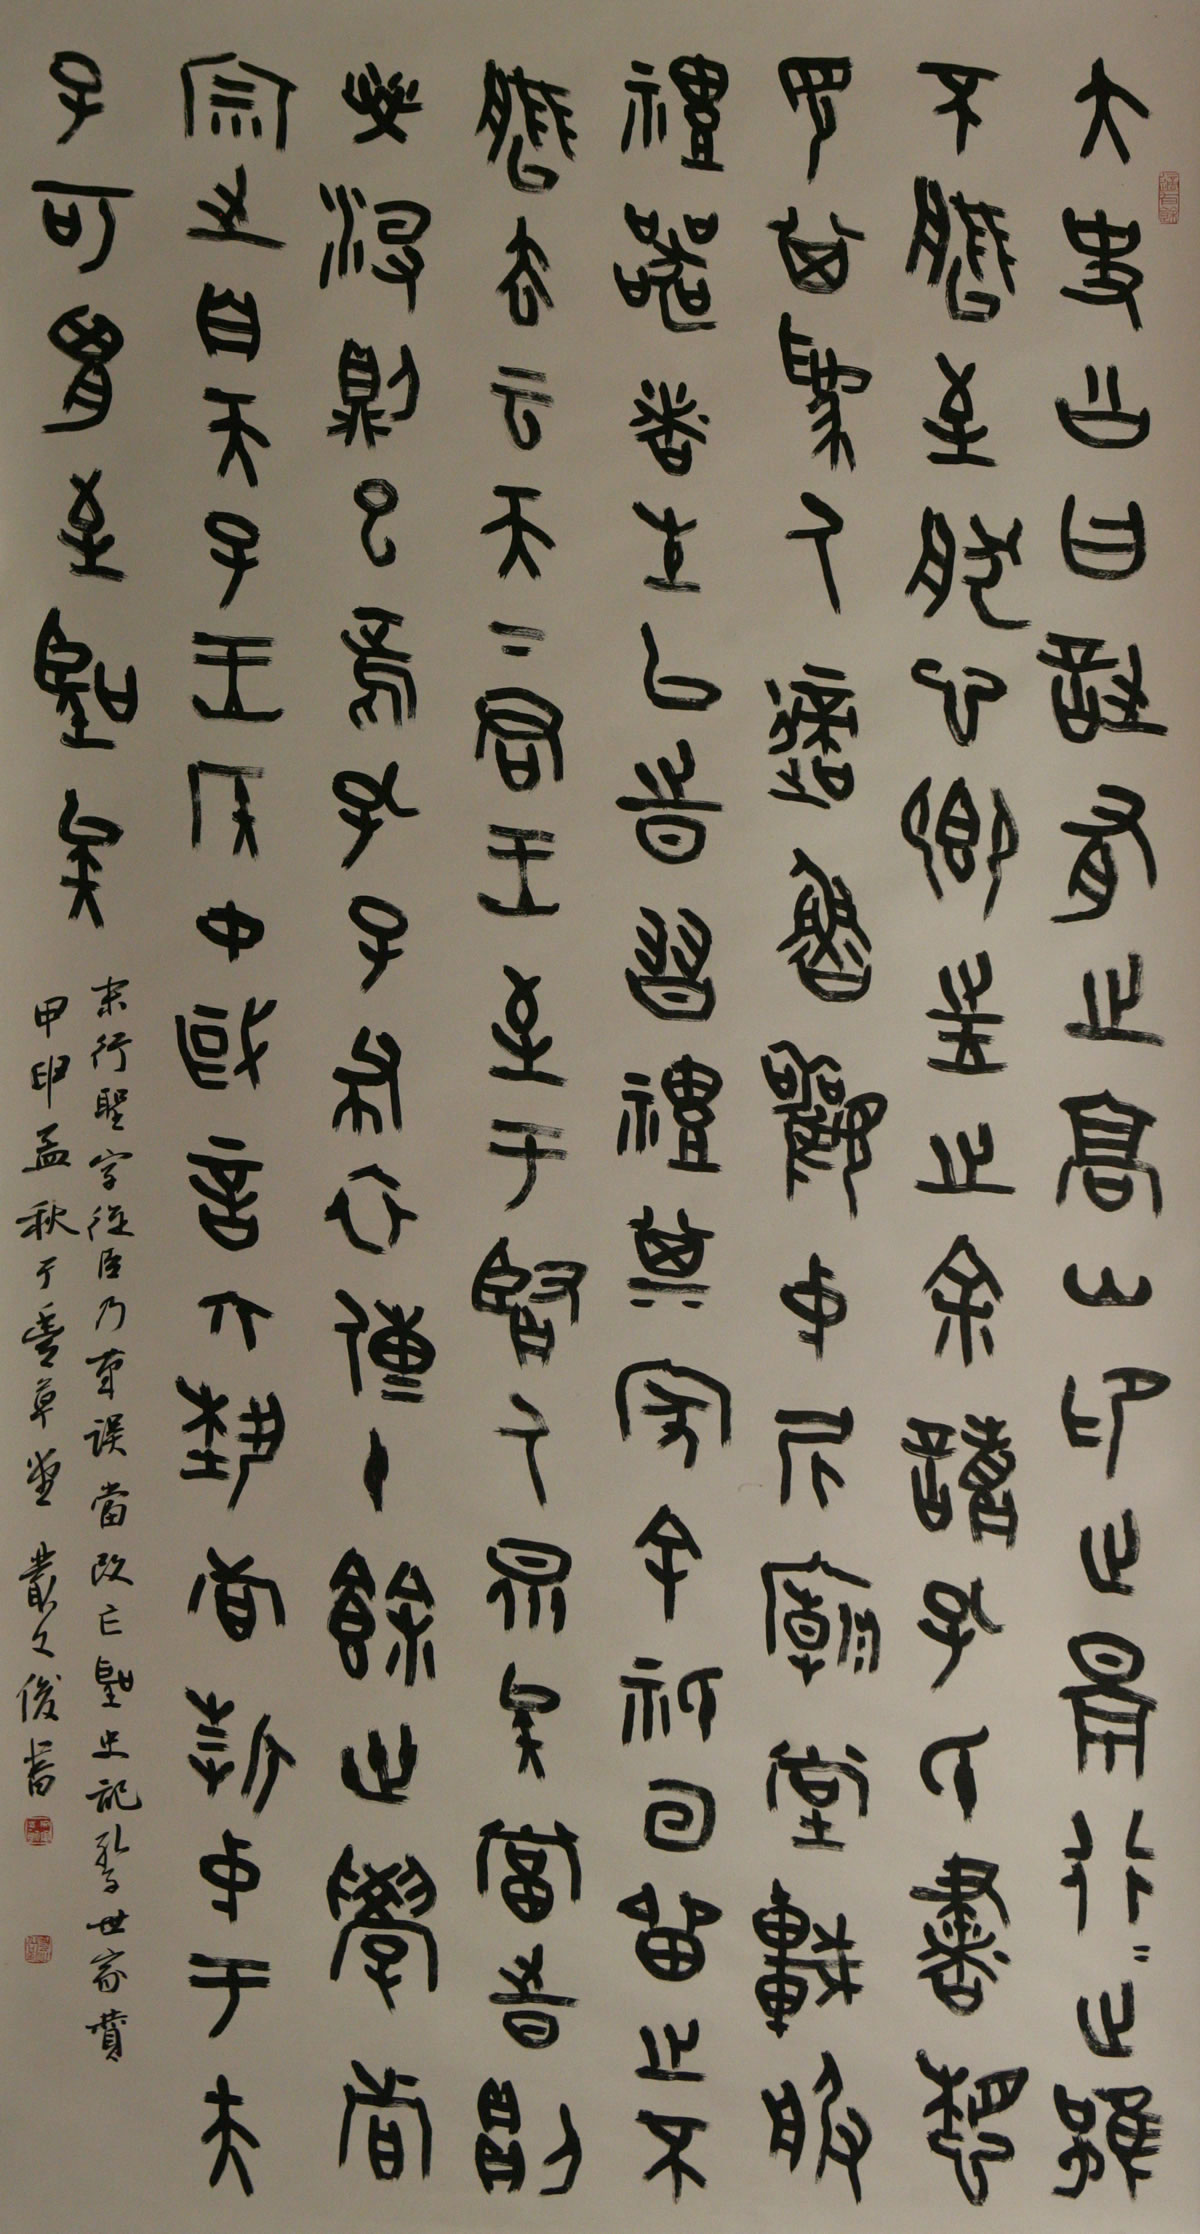 大史公曰詩有之高山卬止景行行止雖
不能至然心鄉往之余讀孔氏書想
見其為人適魯觀中尼廟堂車服
禮器者生以時習禮其家余祗回留之不
能去云天下君王至于賢人眾矣當時則
榮沒則已焉孔子布衣傳十餘世學者
宗之自天子王侯中國言六藝者折中于夫
子可胃至聖矣
末行聖字從臣乃筆誤當改聖史記孔子世家贊
甲申孟秋于豐草堂叢文俊書